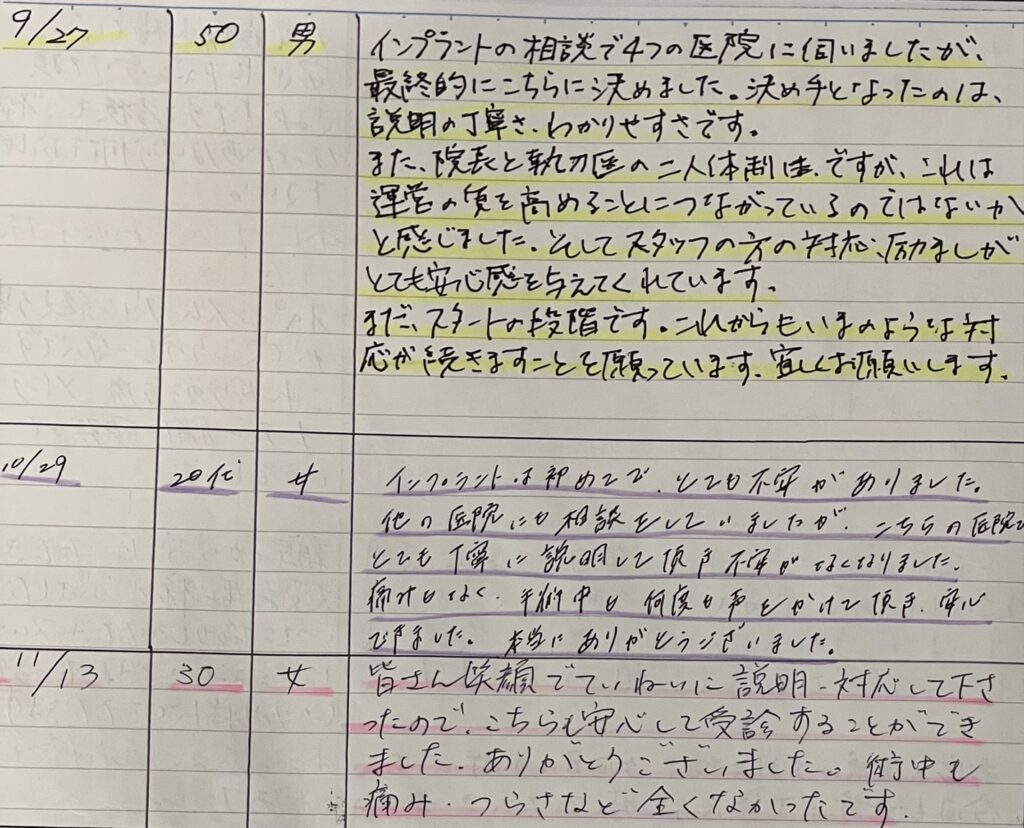 9/27 50 男 インプラントの相談で4つの医院に伺いましたが、
最終的にこちらに決めました。決め手となったのは、
説明の丁寧さ、わかりせすさです。
また、院長と執刀医の二人体制は、ですが、これは
運営の質を高めることにつながっているのではないか
と感じました。そしてスタッフの方の対応、励ましが
とても安心感を与えてくれています。
まだ、スタートの段階です。これからもいまのような対
応が続きますことを願っています。宜しくお願いします。
10/29 20代 女 インプラントは初めてで、とても不安がありました。
他の医院にも相談をしていましたが、こちらの医院で
とても丁寧に説明して頂き不安がなくなりました。
痛みもなく、手術中も何度も声をかけて頂き、安心
できました。本当にありがとうございました。
11/13 30 女 皆さん笑顔でていねいに説明・対応して下さ
ったので、こちらも安心して受診することができ
ました。ありがとうございました。術中も
痛み・つらさなど全くなかったです。